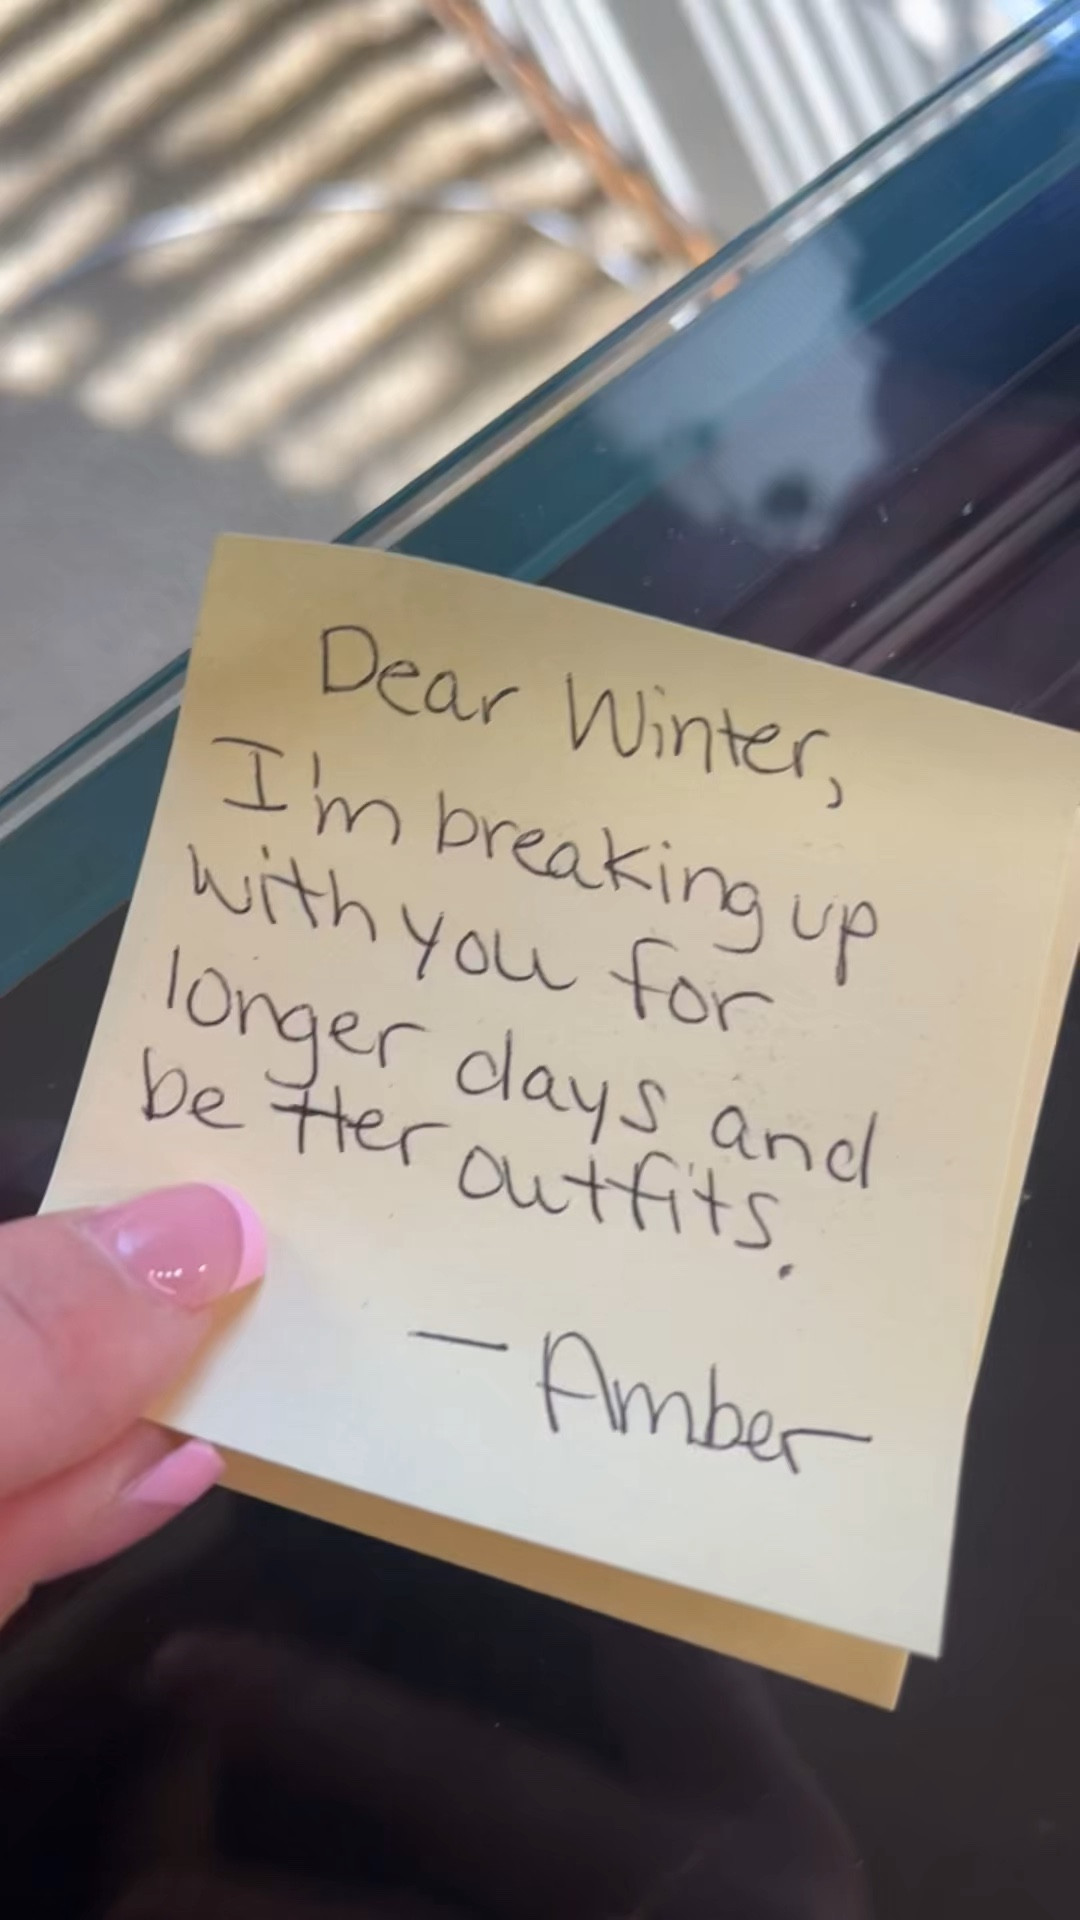 Dear Winter,
I'm breaking up
with you for
longer days and
better outfits.
— Amber